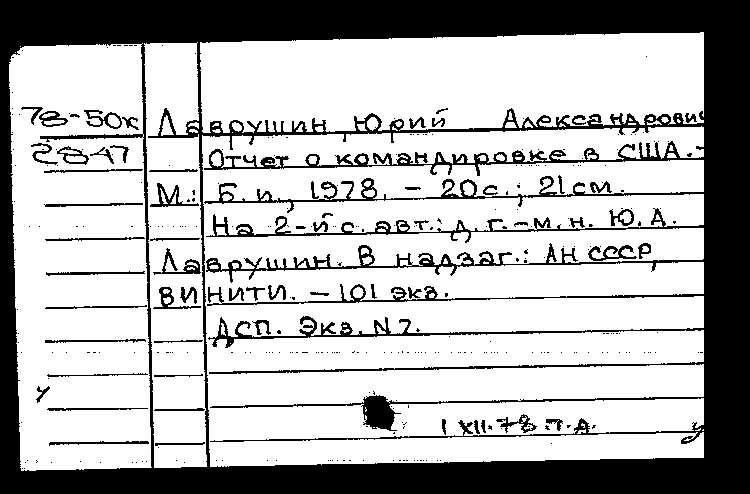 78-50к Лаврушин, Юрий Александрович
28-47 Отчет о командировке в США. -
М.: Б. и., 1978. - 20 с.; 21 см.
На 2-й с. авт.: д. г.-м. н. Ю. А.
Лаврушин. В надзаг.: АН СССР,
ВИНИТИ. - 101 экз.
ДСП. Экз. N 7.
у
1 XII.78 т.А. у